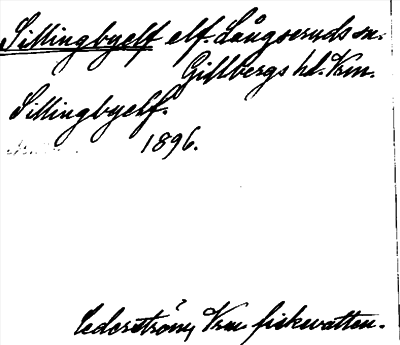 Sillingbyelf elf. Långseruds sn.
Gillbergs hd. Vrm.
Sillingbyelf.
1896.
Cederström, Vrm. fiskevatten.